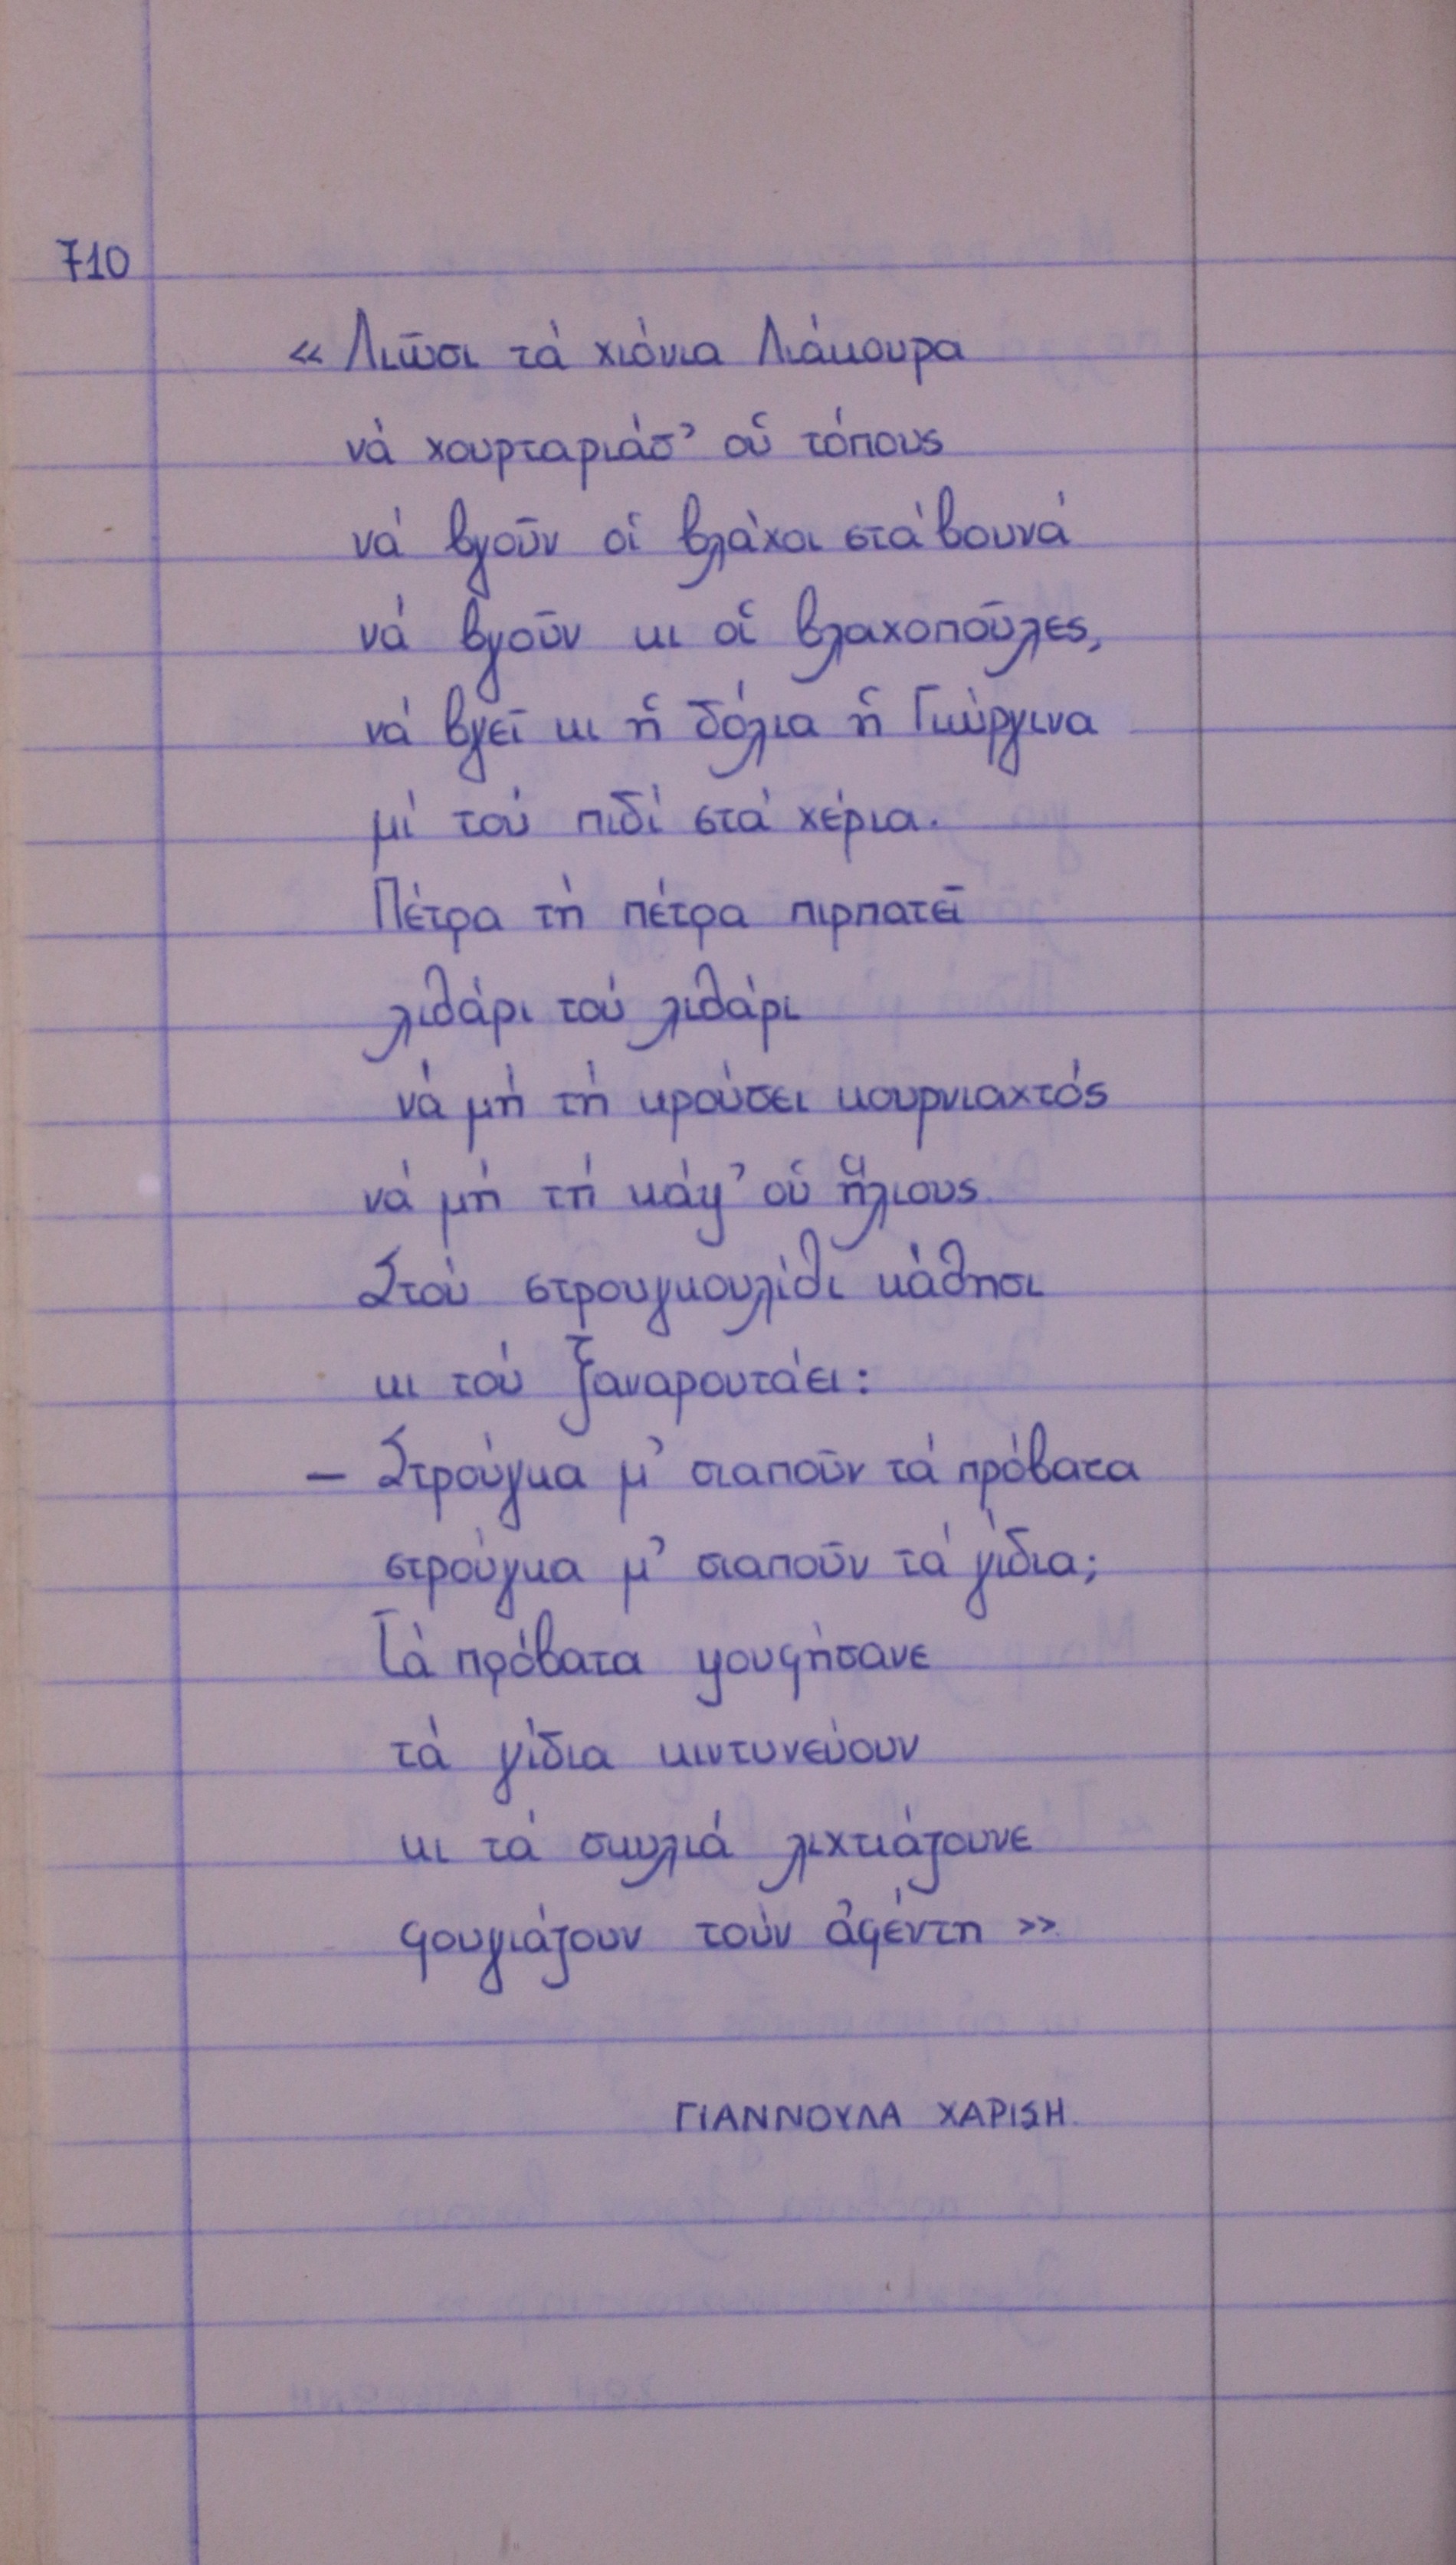 710
« Λιῶσι τά χιόνια Λιάκουρα
νά χουρταριάσ' οὑ τόπους
νά βγοῦν οἱ βλάχοι στά βουνά
νά βγοῦν κι οἱ βλαχοποῦλες,
νά βγεῖ κι ἡ δόλια ἡ Γιώργινα
μί τού πιδί στά χέρια.
Πέτρα τή πέτρα πιρπατεῖ
λιθάρι τού λιθάρι
νά μή τή κρούσει κουρνιαχτός
νά μή τή κάψ' οὑ ἥλιους
Στού στρουγκουλίθι κάθησι
κι τού ξαναρουτάει:
— Στρούγκα μ' σιαποῦν τά πρόβατα
στρούγκα μ' σιαποῦν τά γίδια;
Τά πρόβατα ψουφήσανε
τά γίδια κιντυνεύουν
κι τά σκυλιά λιχτιάζουνε
φουγιάζουν τούν ἀφέντη »
ΓΙΑΝΝΟΥΛΑ ΧΑΡΙΣΗ